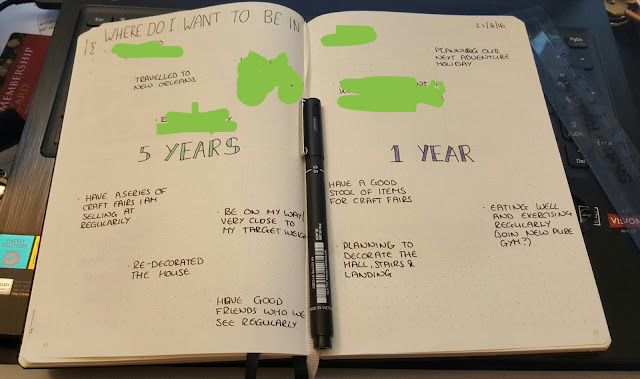 WHERE DO I WANT TO BE IN
21/8/16
TRAVELLED TO
NEW ORLEANS
5 YEARS
· HAVE A SERIES OF
CRAFT FAIRS I AM
SELLING AT
REGULARILY
· BE ON MY WAY/
VERY CLOSE TO
MY TARGET WEIGHT
· RE-DECORATED
THE HOUSE
HAVE GOOD
FRIENDS WHO WE
SEE REGULARLY
PLANNING OUR
NEXT ADVENTURE
HOLIDAY
1 YEAR
HAVE A GOOD
STOCK OF ITEMS
FOR CRAFT FAIRS
· PLANNING TO
DECORATE THE
HALL, STAIRS &
LANDING
· EATING WELL
AND EXERCISING
REGULARLY
(JOIN NEW PURE
GYM?)
MEMBERSHIP
CARD
VISION
0.5